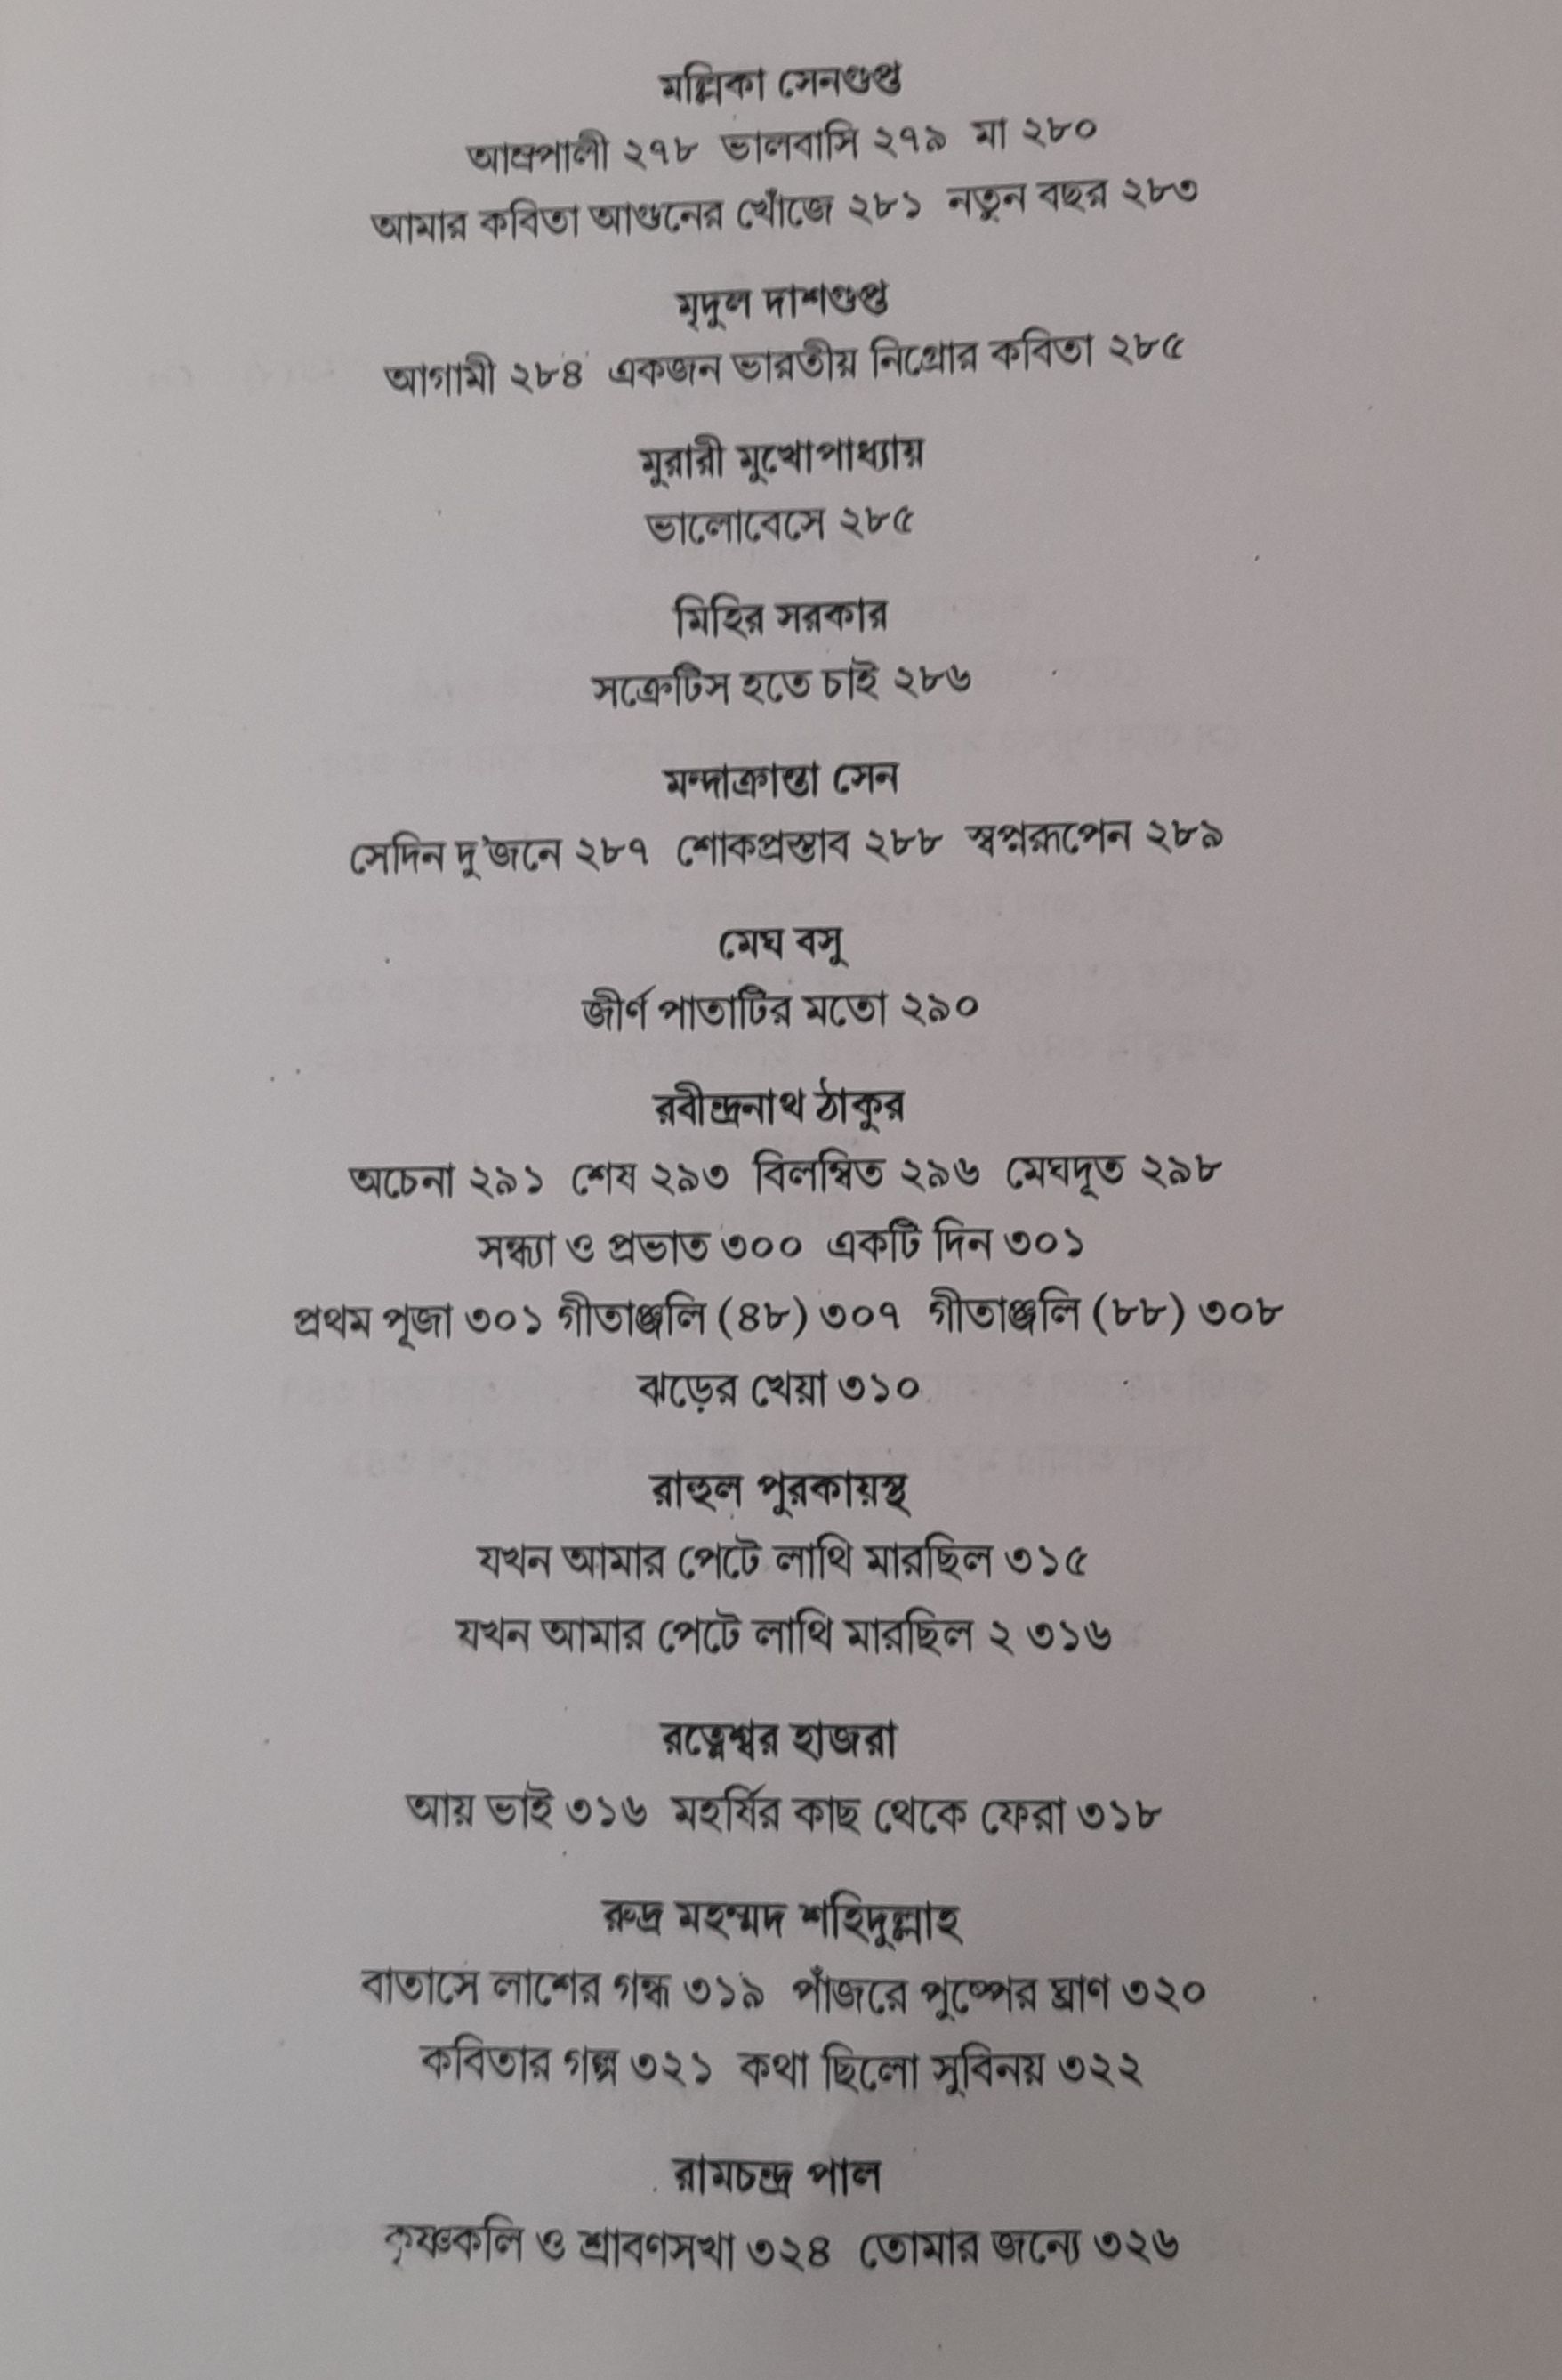 মল্লিকা সেনগুপ্ত
আম্রপালী ২৭৮ ভালবাসি ২৭৯ মা ২৮০
আমার কবিতা আগুনের খোঁজে ২৮১ নতুন বছর ২৮৩
মৃদুল দাশগুপ্ত
আগামী ২৮৪ একজন ভারতীয় নিগ্রোর কবিতা ২৮৫
মুরারী মুখোপাধ্যায়
ভালোবেসে ২৮৫
মিহির সরকার
সক্রেটিস হতে চাই ২৮৬
মন্দাক্রান্তা সেন
সেদিন দু'জনে ২৮৭ শোকপ্রস্তাব ২৮৮ স্বপ্নরূপেন ২৮৯
মেঘ বসু
জীর্ণ পাতাটির মতো ২৯০
রবীন্দ্রনাথ ঠাকুর
অচেনা ২৯১ শেষ ২৯৩ বিলম্বিত ২৯৬ মেঘদূত ২৯৮
সন্ধ্যা ও প্রভাত ৩০০ একটি দিন ৩০১
প্রথম পূজা ৩০১ গীতাঞ্জলি (৪৮) ৩০৭ গীতাঞ্জলি (৮৮) ৩০৮
ঝড়ের খেয়া ৩১০
রাহুল পুরকায়স্থ
যখন আমার পেটে লাথি মারছিল ৩১৫
যখন আমার পেটে লাথি মারছিল ২ ৩১৬
রত্নেশ্বর হাজরা
আয় ভাই ৩১৬ মহর্ষির কাছ থেকে ফেরা ৩১৮
রুদ্র মহম্মদ শহিদুল্লাহ
বাতাসে লাশের গন্ধ ৩১৯ পাঁজরে পুষ্পের ঘ্রাণ ৩২০
কবিতার গল্প ৩২১ কথা ছিলো সুবিনয় ৩২২
রামচন্দ্র পাল
কৃষ্ণকলি ও শ্রাবণসখা ৩২৪ তোমার জন্যে ৩২৬